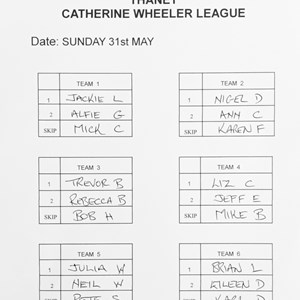 THANET
CATHERINE WHEELER LEAGUE
Date: SUNDAY 31st MAY
TEAM 1
1 JACKIE L
2 ALFIE G
SKIP MICK C
TEAM 2
1 NIGEL D
2 ANN C
SKIP KAREN F
TEAM 3
1 TREVOR B
2 REBECCA B
SKIP BOB H
TEAM 4
1 LIZ C
2 JEFF E
SKIP MIKE B
TEAM 5
1 JULIA W
2 NEIL W
SKIP PETE S
TEAM 6
1 BRIAN L
2 EILEEN D
SKIP KARL D